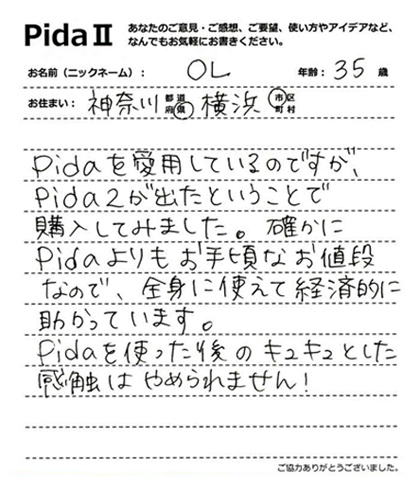 Pida II あなたのご意見・ご感想、ご要望、使い方やアイデアなど、
なんでもお気軽にお書きください。
お名前(ニックネーム): OL 年齢: 35 歳
お住まい: 神奈川 都道府県 横浜 市区町村
Pidaを愛用しているのですが、
Pida2が出たということで
購入してみました。確かに
Pidaよりもお手頃なお値段
なので、全身に使えて経済的に
助かっています。
Pidaを使った後のキュキュとした
感触はやめられません!
ご協力ありがとうございました。